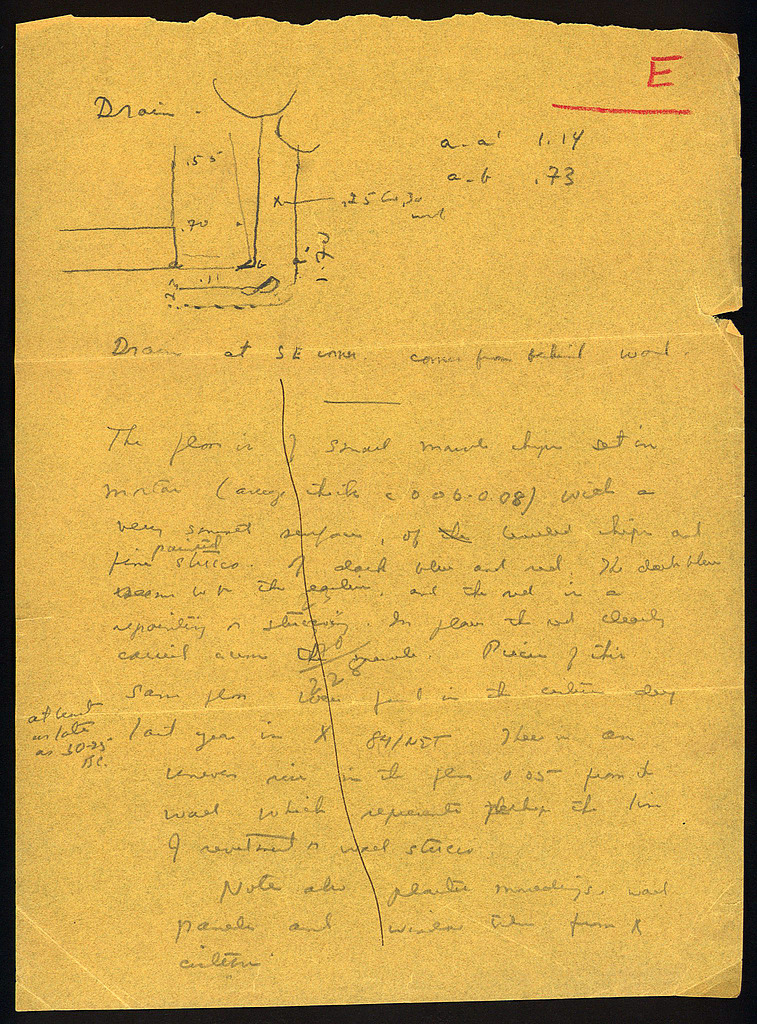 E
Drain -
a-a' 1.14
a-b .73
.55
.25 to .30
.70
a b a'
.11
1.70
Drain at SE corner. comes from behind wall.
The floor is of small marble chips set in
mortar (average thick c 0.06-0.08) with a
very smooth surface, of the chips and
painted
fine stucco. Of dark blue and red. The dark blue
seems to be the earlier, and the red is a
repainting or stuccoing. In places the red clearly
carried across the marble. Pieces of this
same floor were found in the cistern dug
at least
as late
as 30-25
B.C.
last year in X 84/NET There is an
uneven rise in the floor 0.05 from the
wall which represents perhaps the line
of revetment or wall stucco
Note also plaster mouldings, wall
panels and window from X
cistern.